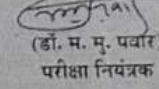 (डॉ. म. मु. पवार
परीक्षा नियंत्रक